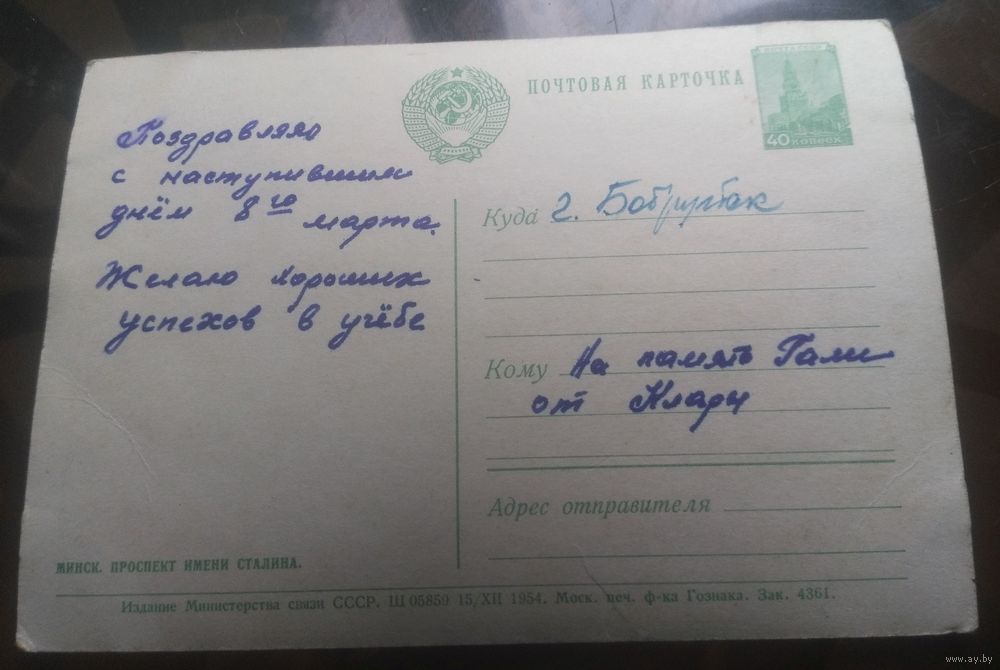 ПОЧТОВАЯ КАРТОЧКА
ПОЧТА СССР
40 КОПЕЕК
Поздравляю
с наступившим
днём 8го
марта.
Желаю хороших
успехов в учёбе
Куда г. Бобруйск
Кому На память Гале
от Клары
Адрес отправителя
МИНСК. ПРОСПЕКТ ИМЕНИ СТАЛИНА.
Издание Министерства связи СССР. Ш 05859 15/XII 1954. Моск. печ. ф-ка Гознака. Зак. 4361.
www.ay.by